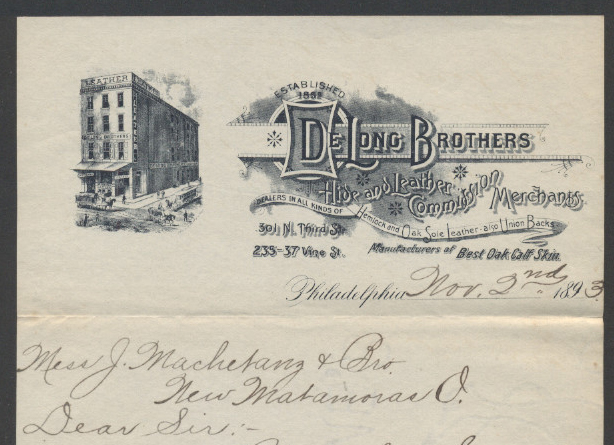 LEATHER
ESTABLISHED
1852
DELONG BROTHERS
Hide and Leather
Commission Merchants.
DEALERS IN ALL KINDS OF Hemlock and Oak Sole Leather - also Union Backs
301 N. Third St.
235-37 Vine St.
Manufacturers of Best Oak Calf Skin.
Philadelphia Nov. 2nd 1893
Mess J. Machetanz & Bro.
New Matamoras O.
Dear Sir:-